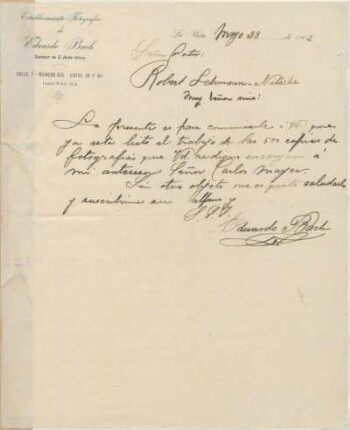 Establecimiento Fotográfico
de
Eduardo Bach
Sucesor de
CALLE 7 - NUMERO
La Plata, Mayo 23 de
Señor Doctor:
Robert Lehmann-Nitsche
Muy Señor mio:
La presente es para comunicarle á Vd. que
ya está listo el trabajo de las 500 copias de
fotografías que Vd. se dignó encargar á
mi antecesor Señor Carlos Mayer.
Sin otro objeto me es grato saludarle
y suscribirme su affmo y
S. S. S.
Eduardo Bach